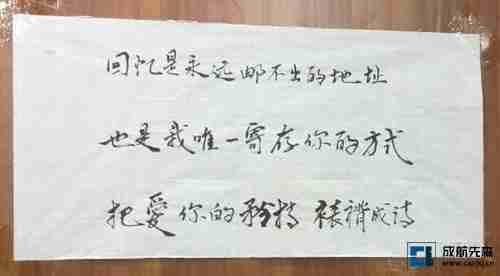 回忆是永远邮不出的地址
也是我唯一寄存你的方式
把愛你的矜持 裱褙成诗
成航先森